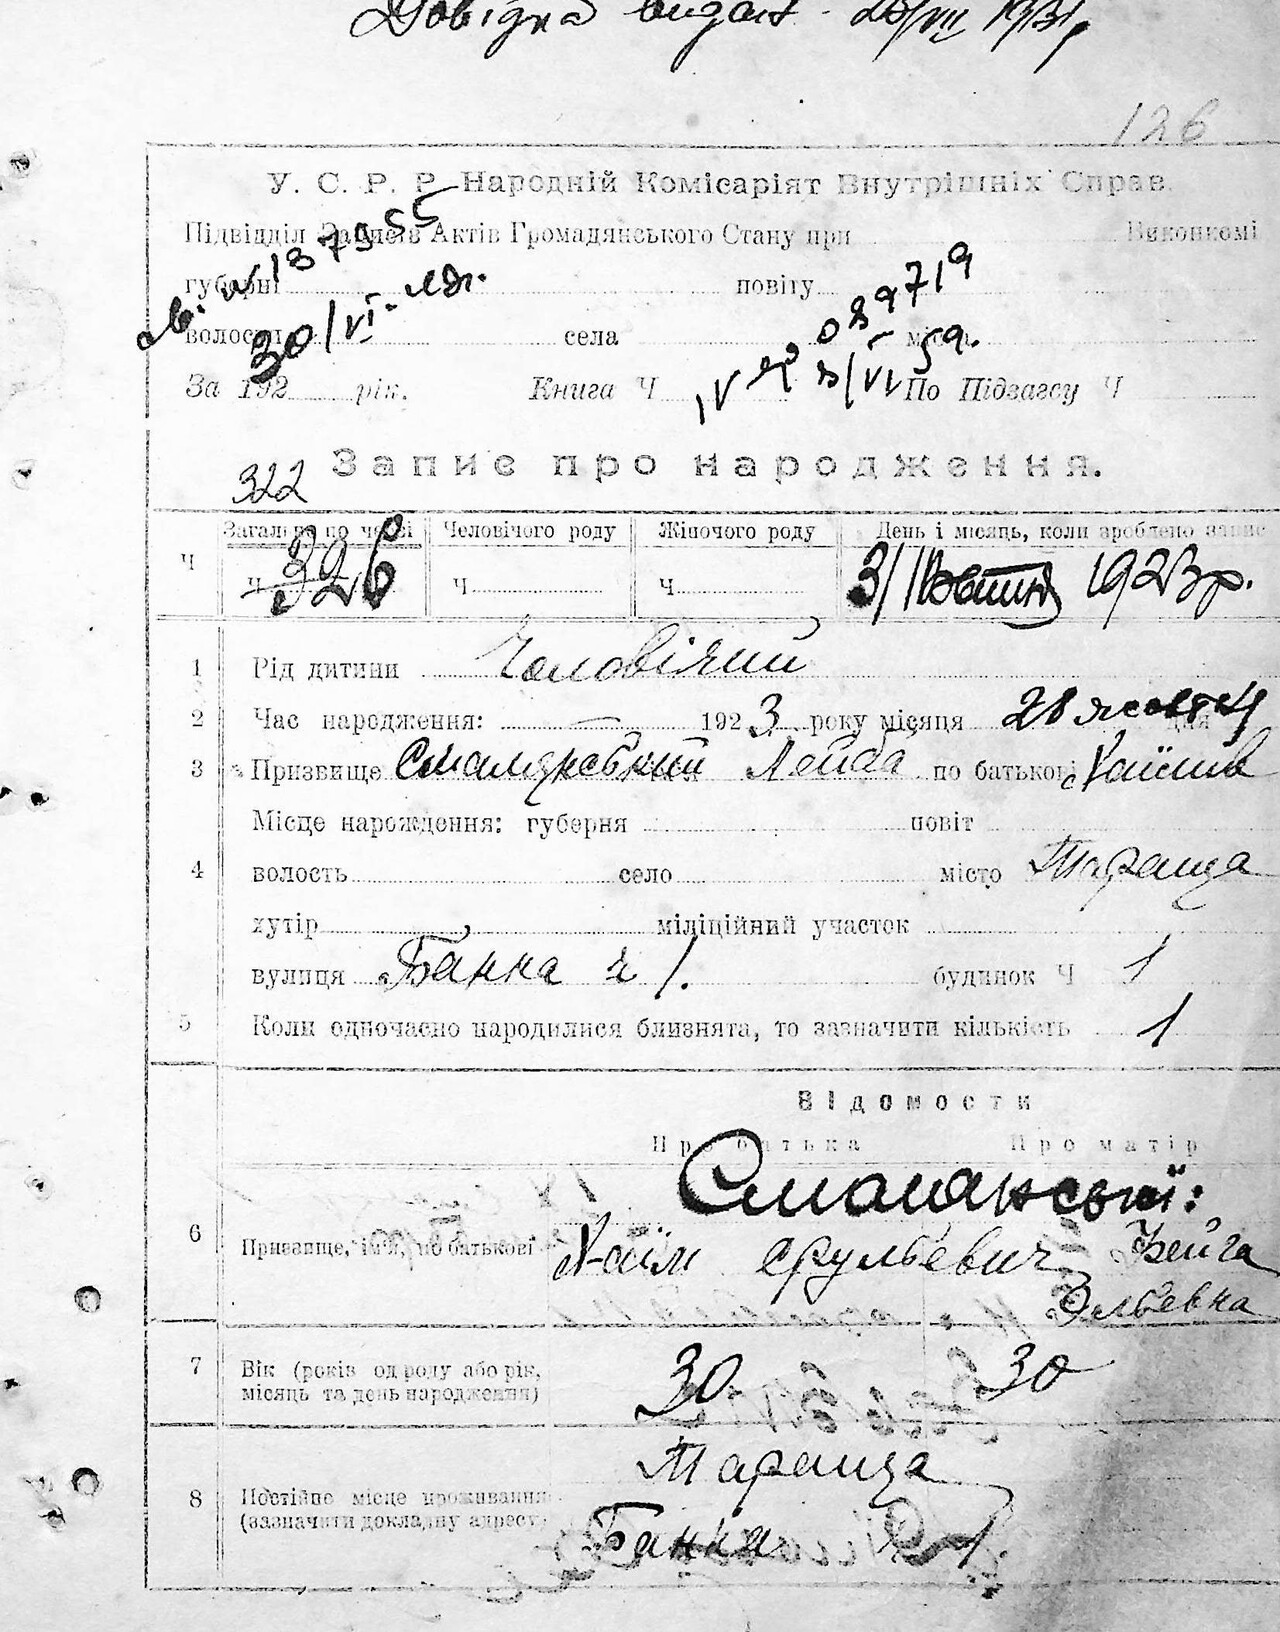 Довідка видан. 28/VII 1931,
126
У. С. Р. Р. Народній Комісаріят Внутрішніх Справ.
Підвідділ Записів Актів Громадянського Стану при Виконкомі
№ 1379855
губерні повіту
089719
волости 30/VI села міста
За 192 рік. Книга Ч По Підзагсу Ч
Запис про народження.
322
Загально по черзі Чоловічого роду Жіночого роду День і місяць, коли зроблено запис
Ч Ч 326 Ч Ч 31/Жовтня 1923 р.
1 Рід дитини Чоловічий
2 Час народження: — 1923 року місяця 28 жовтня дня
3 Призвище Лейба по батькові Хаїмів
Місце нарождення: губерня повіт
4 волость село місто Тараща
хутір міліційний участок
вулиця Банна ч 1. будинок Ч 1
5 Коли одночасно народилися близнята, то зазначити кількість 1
Відомости
Про батька Про матір
Смолянські:
6 Призвище, ім'я, по батькові Хаїм Срульевич Бейга
Эльевна
7 Вік (років од роду або рік, місяць та день народження) 30 30
8 Постійне місце проживання (зазначити докладну адресу) Тараща
Банна ч 1.